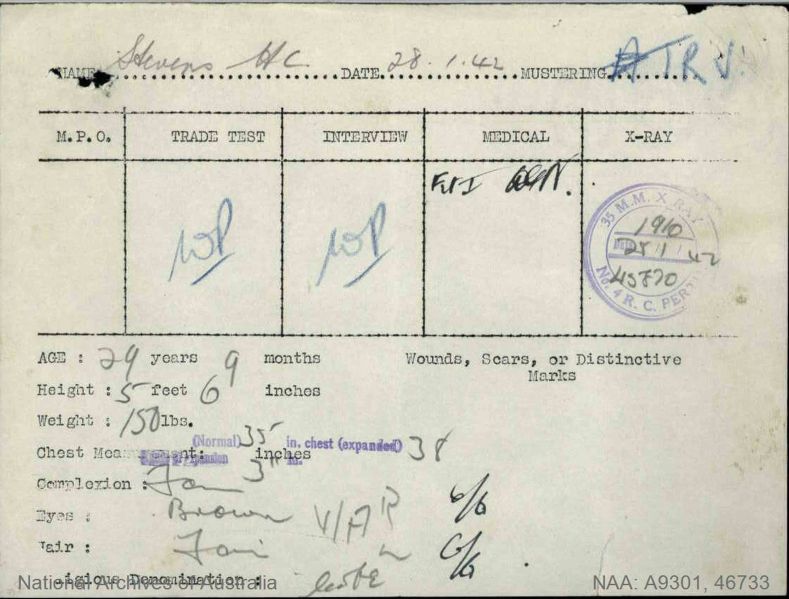 NAME Stevens H C. DATE 28.1.42 MUSTERING ATRJ.
M.P.O. TRADE TEST INTERVIEW MEDICAL X-RAY
WP WP
35 M.M. X RAY
1910
28 1 42
45770
No. 4 R. C. PERTH
AGE : 29 years 9 months Wounds, Scars, or Distinctive
Marks
Height : 5 feet 6 inches
Weight : 150 lbs.
(Normal) 35 in. chest (expanded) 38
Chest Measurement: 3" inches
Complexion : Fair
Eyes : Brown V/A R 6/6
Hair : Fair L 6/6
Religious Denomination : C of E
National Archives of Australia NAA: A9301, 46733